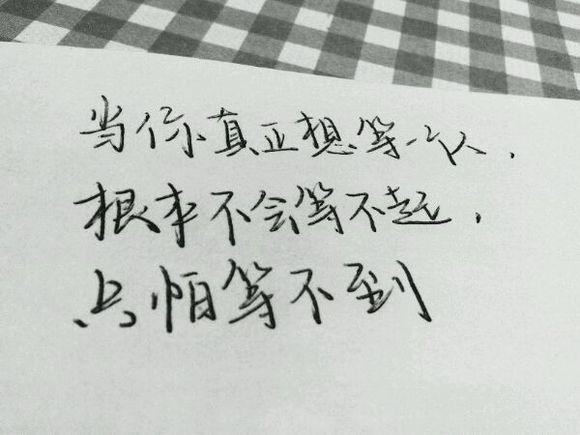 当你真正想等一个人，
根本不会等不起，
只怕等不到